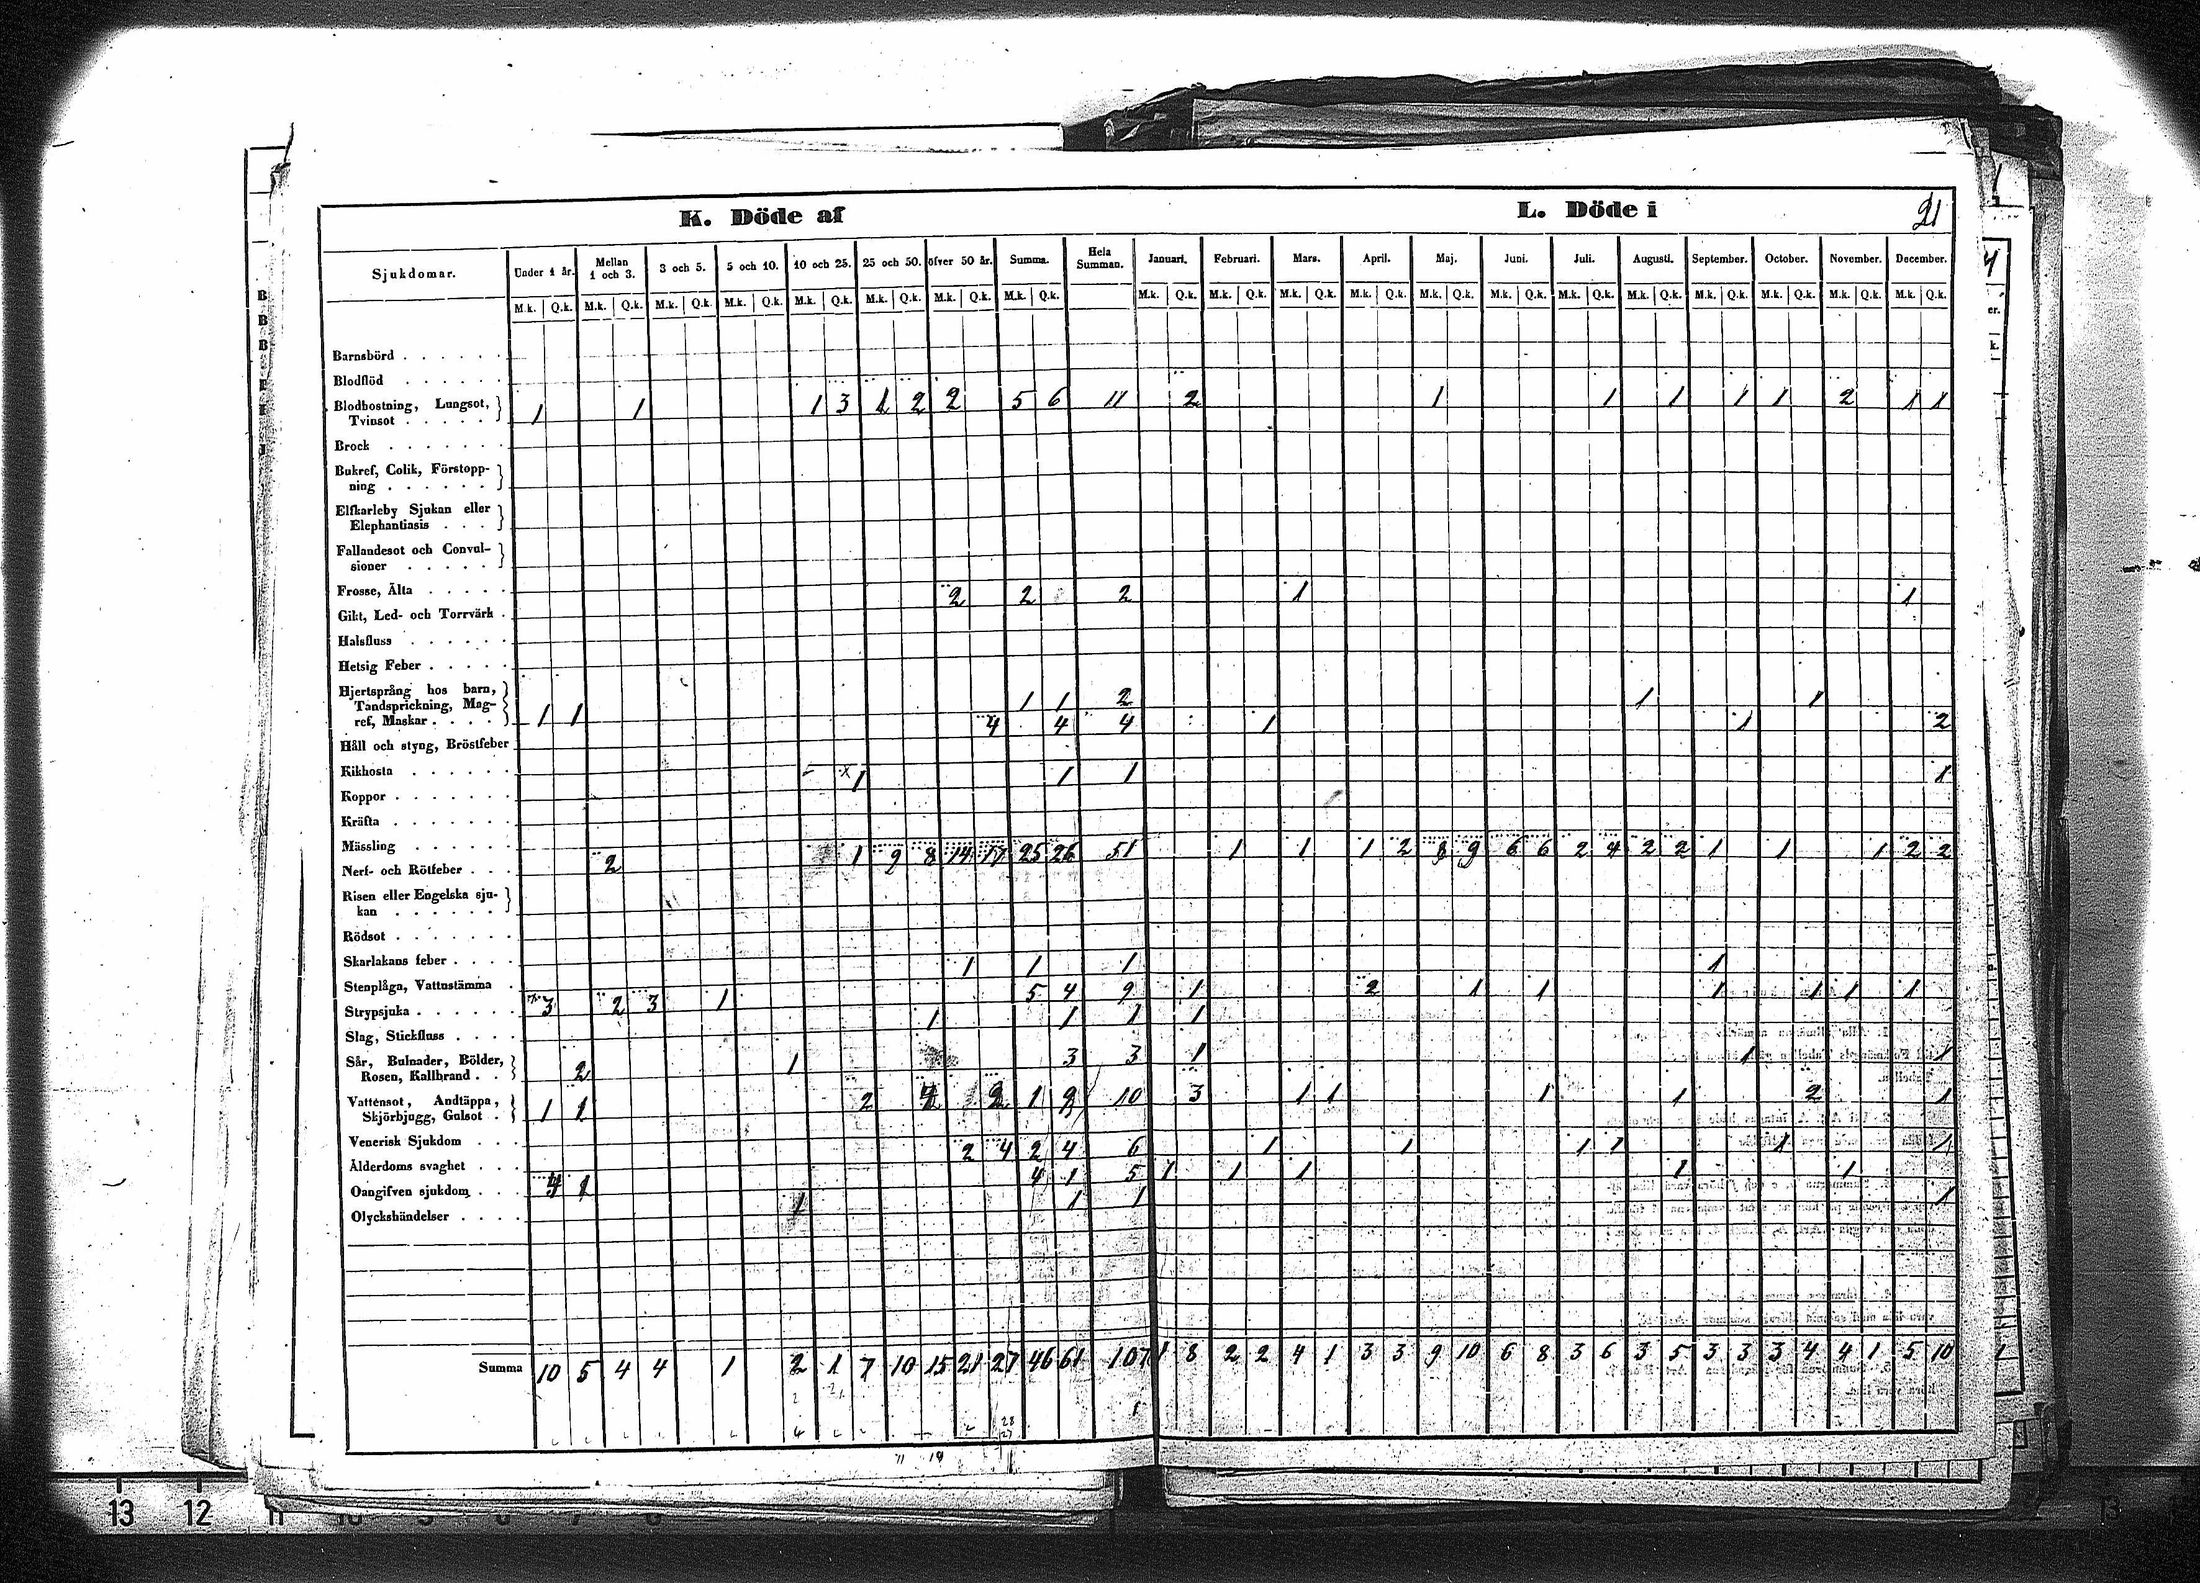 K. Döde af L. Döde i 21
Sjukdomar. Under 1 år. Mellan 1 och 3. 3 och 5. 5 och 10. 10 och 25. 25 och 50. öfver 50 år. Summa. Hela Summan. Januari. Februari. Mars. April. Maj. Juni. Juli. Augusti. September. October. November. December.
M.k. Q.k. M.k. Q.k. M.k. Q.k. M.k. Q.k. M.k. Q.k. M.k. Q.k. M.k. Q.k. M.k. Q.k. M.k. Q.k. M.k. Q.k. M.k. Q.k. M.k. Q.k. M.k. Q.k. M.k. Q.k. M.k. Q.k. M.k. Q.k. M.k. Q.k. M.k. Q.k. M.k. Q.k. M.k. Q.k.
Barnsbörd
Blodflöd
Blodhostning, Lungsot,
Tvinsot 1 1 1 3 1 2 2 5 6 11 2 1 1 1 1 1 2 1 1
Brock
Bukref, Colik, Förstopp-
ning
Elfkarleby Sjukan eller
Elephantiasis
Fallandesot och Convul-
sioner
Frosse, Älta 2 2 2 1 1
Gikt, Led- och Torrvärk
Halsfluss
Hetsig Feber
Hjertsprång hos barn,
Tandsprickning, Mag- 1 1 2 1 1
ref, Maskar 1 1
4 4 4 1 1 2
Håll och styng, Bröstfeber
Kikhosta 1 1 1 1
Koppor
Kräfta
Mässling
Nerf- och Rötfeber 2 1 9 8 14 17 25 26 51 1 1 1 2 8 9 6 6 2 4 2 2 1 1 1 2 2
Risen eller Engelska sju-
kan
Rödsot
Skarlakans feber 1 1 1 1
Stenplåga, Vattustämma
3 2 3 1 5 4 9 1 2 1 1 1 1 1 1
Strypsjuka 1 1 1 1
Slag, Stickfluss
Sår, Bulnader, Bölder, 3 3 1 1 1
Rosen, Kallbrand 2 1
Vattensot, Andtäppa, 2 1 9 10 3 1 1 1 1 2 1
Skjörbjugg, Gulsot 1 1
Venerisk Sjukdom
2 4 2 4 6 1 1 1 1 1 1
Ålderdoms svaghet
4 1 4 1 5 1 1 1 1 1
Oangifven sjukdom
1 1 1 1
Olyckshändelser
Summa 10 5 4 4 1 2 1 7 10 15 21 27 46 61 107 1 8 2 2 4 1 3 3 9 10 6 8 3 6 3 5 3 3 3 4 4 1 5 10
13 12